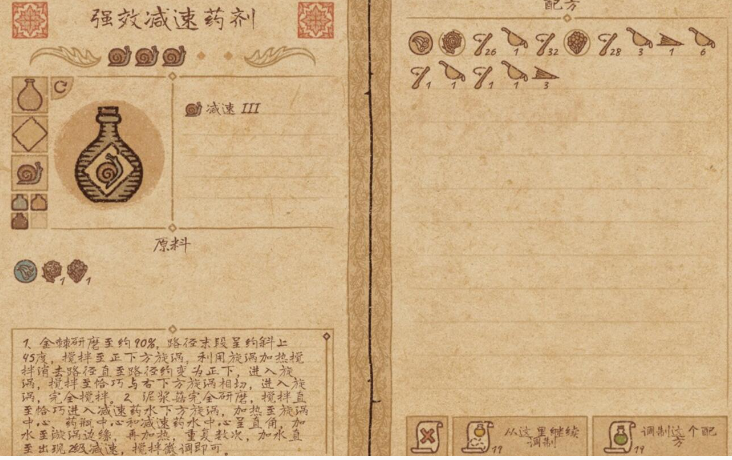 强效减速药剂
减速 III
原料
1 1
1、金棘研磨至约90%,路径末段呈约斜上
45度,搅拌至正下方旋涡,利用旋涡加热搅
拌消去路径直至路径约变为正下,进入旋
涡,搅拌至恰巧与右下方旋涡相切,进入旋
涡,完全搅拌,2、泥浆菇完全研磨,搅拌直
至恰巧进入减速药水下方旋涡,加热至旋涡
中心,药瓶中心和减速药水中心呈直角,加
水至漩涡边缘,再加热,重复数次,加水直
至出现2级减速,搅拌微调即可。
配方
26 1 32 28 3 1 6
1 1 1 1 3
19 从这里继续调制
19 调制这个配方